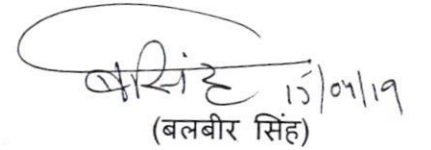 बसिंह 15/04/19
(बलबीर सिंह)